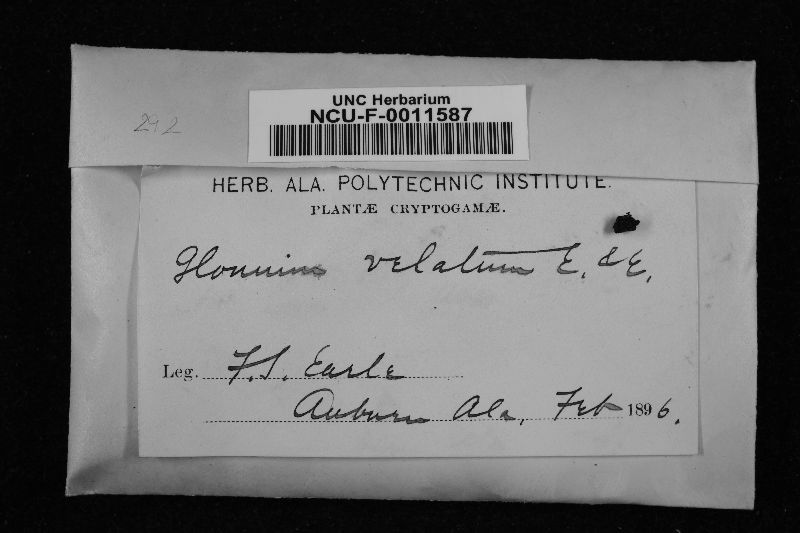 UNC Herbarium
NCU-F-0011587
292
HERB. ALA. POLYTECHNIC INSTITUTE.
PLANTÆ CRYPTOGAMÆ.
Glonium velatum E. & E.
Leg. F. S. Earle
Auburn Ala, Feb 1896.